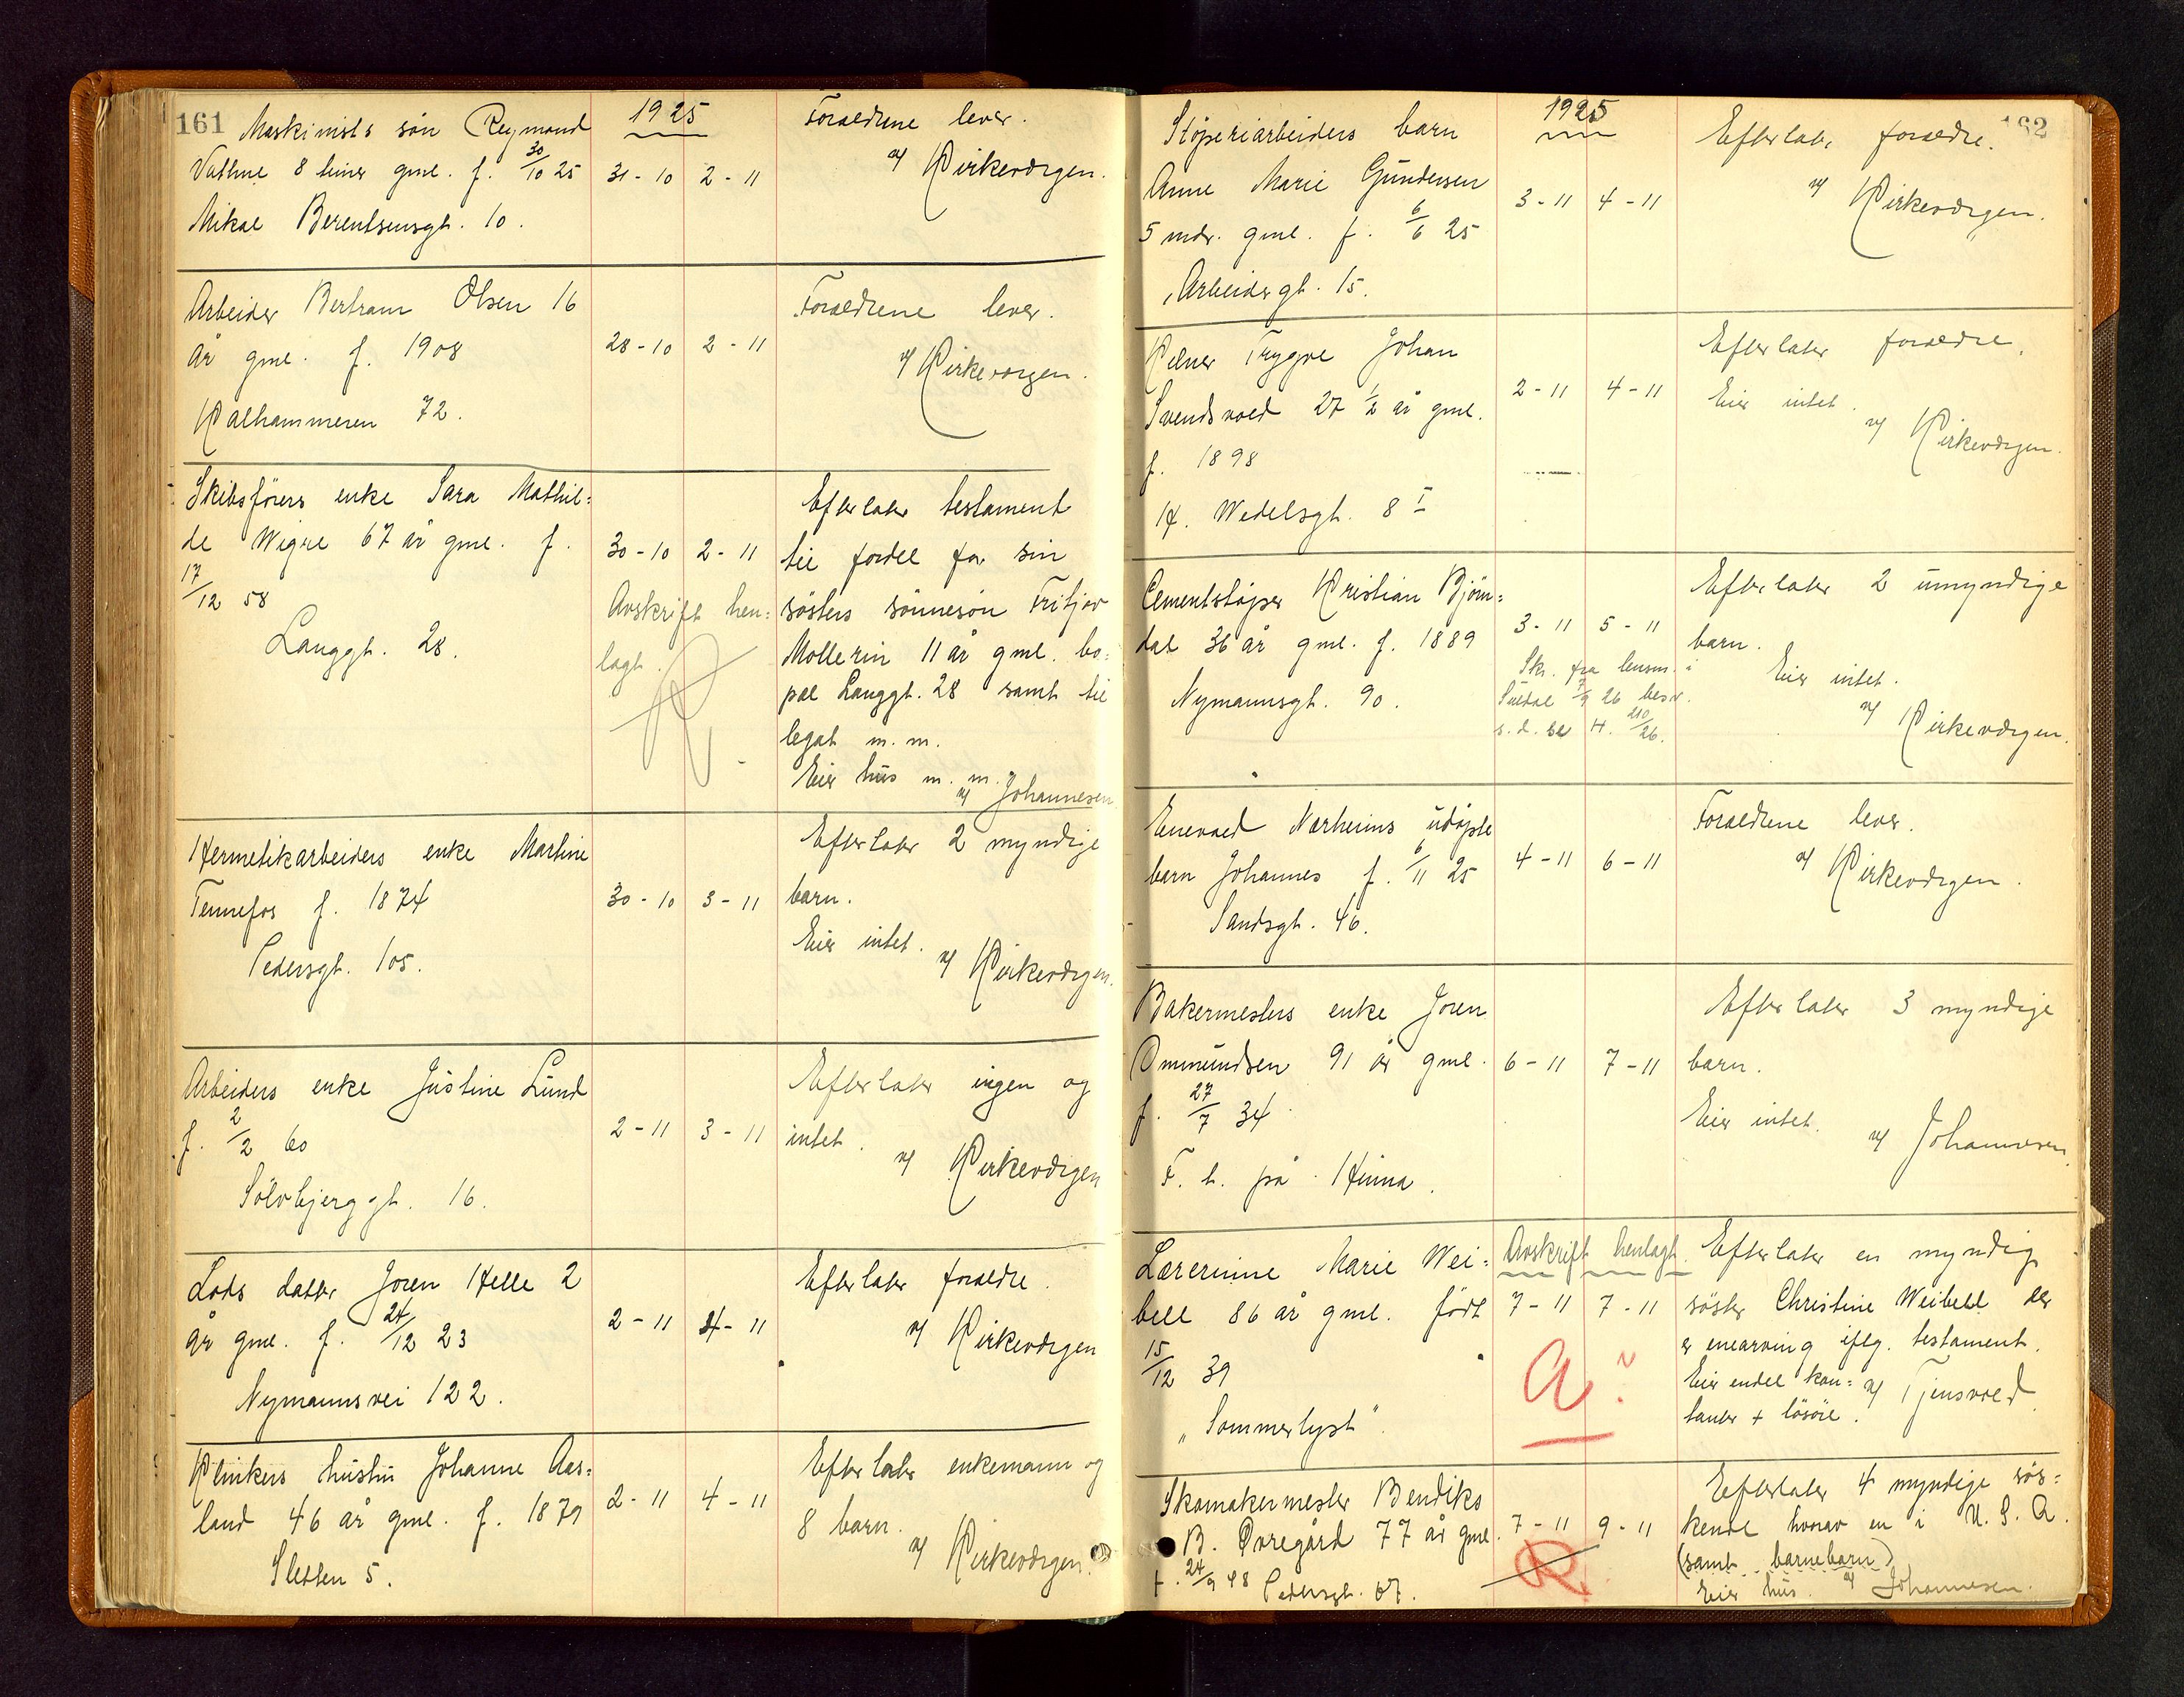 161
1925
Maskinists søn Reymond
Vathne 8 timer gml. f. 30/10 25
Mikal Berentsensgt. 10.
31-10 2-11
Foraeldrene lever.
v/ Kirkevergen.
Arbeider Bertram Olsen 16
år gml. f. 1908
Kalhammeren 72.
28-10 2-11
Foraeldrene lever.
v/ Kirkevergen.
Skibsförers enke Sara Mathil=
de Wigre 67 år gml. f.
17/12 58
Langgt. 28.
30-10 2-11
Avskrift hen=
lagt.
Efterlater testament
til fordel for sin
søsters sønnesøn Fritjov
Mollerin 11 år gml. bo=
pæl Langgt. 28 samt til
legat m.m.
Eier hus m.m.
v/ Johannesen
Hermetikarbeiders enke Martine
Tennefos f. 1874
Pedersgt. 105.
30-10 3-11
Efterlater 2 myndige
barn.
Eier intet.
v/ Kirkevergen.
Arbeiders enke Justine Lund
f. 2/2 60
Sölvbjerggt. 16.
2-11 3-11
Efterlater ingen og
intet.
v/ Kirkevergen
Lods datter Joren Helle 2
år gml. f. 24/12 23
Nymannsvei 122.
2-11 4-11
Efterlater foraeldre.
v/ Kirkevergen
Klinkers hustru Johanne Aas=
land 46 år gml. f. 1879
Sletten 5.
2-11 4-11
Efterlater enkemann og
8 barn.
v/ Kirkevergen.
162
1925
Støperiarbeiders barn
Anne Marie Gundersen
5 mdr. gml. f. 6/6 25
Arbeidergt. 15.
3-11 4-11
Efterlater foraeldre.
v/ Kirkevergen.
Kelner Trygve Johan
Svendsvold 27 1/2 år gml.
f. 1898
H. Wedelsgt. 8 I
2-11 4-11
Efterlater foraeldre,
Eier intet.
v/ Kirkevergen.
Cementstøper Kristian Bjørn=
dal 36 år gml. f. 1889
Nymannsgt. 90.
3-11 5-11
Skr. fra lensm. i
Suldal 7/9 26 besv.
s.d. se H. 210/26.
Efterlater 2 umyndige
barn.
Eier intet.
v/ Kirkevergen.
Enevald Nærheims udøpte
barn Johannes f. 6/11 25
Sandsgt. 46.
4-11 6-11
Foraeldrene lever.
v/ Kirkevergen.
Bakermesters enke Joren
Ommundsen 91 år gml.
f. 27/7 34
F. t. på Hinna.
6-11 7-11
Efterlater 3 myndige
barn.
Eier intet.
v/ Johannesen.
Lærerinne Marie Wei=
bell 86 år gml. født
15/12 39
„Sommerlyst"
Avskrift henlagt.
7-11 7-11
A ?
Efterlater en myndig
søster Christine Weibell der
er enearving iflg. testament.
Eier endel kon=
tanter + løsøre.
v/ Tjensvold.
Skomakermester Bendiks
B. Øvregård 77 år gml.
f. 24/9 48 Pedersgt. 67.
7-11 9-11
R
Efterlater 4 myndige søs=
kende hvorav en i U.S.A.
(samt barnebarn)
Eier hus. v/ Johannesen.